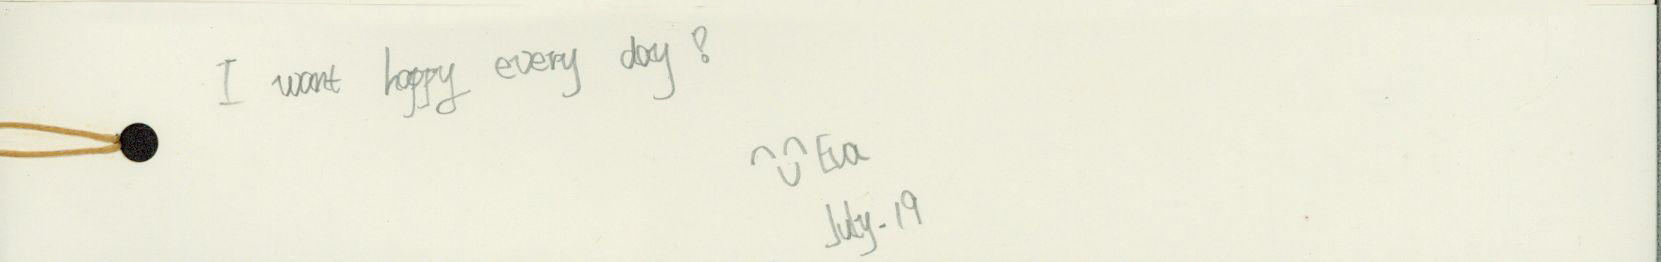 I want happy every day!
Eva
July. 19